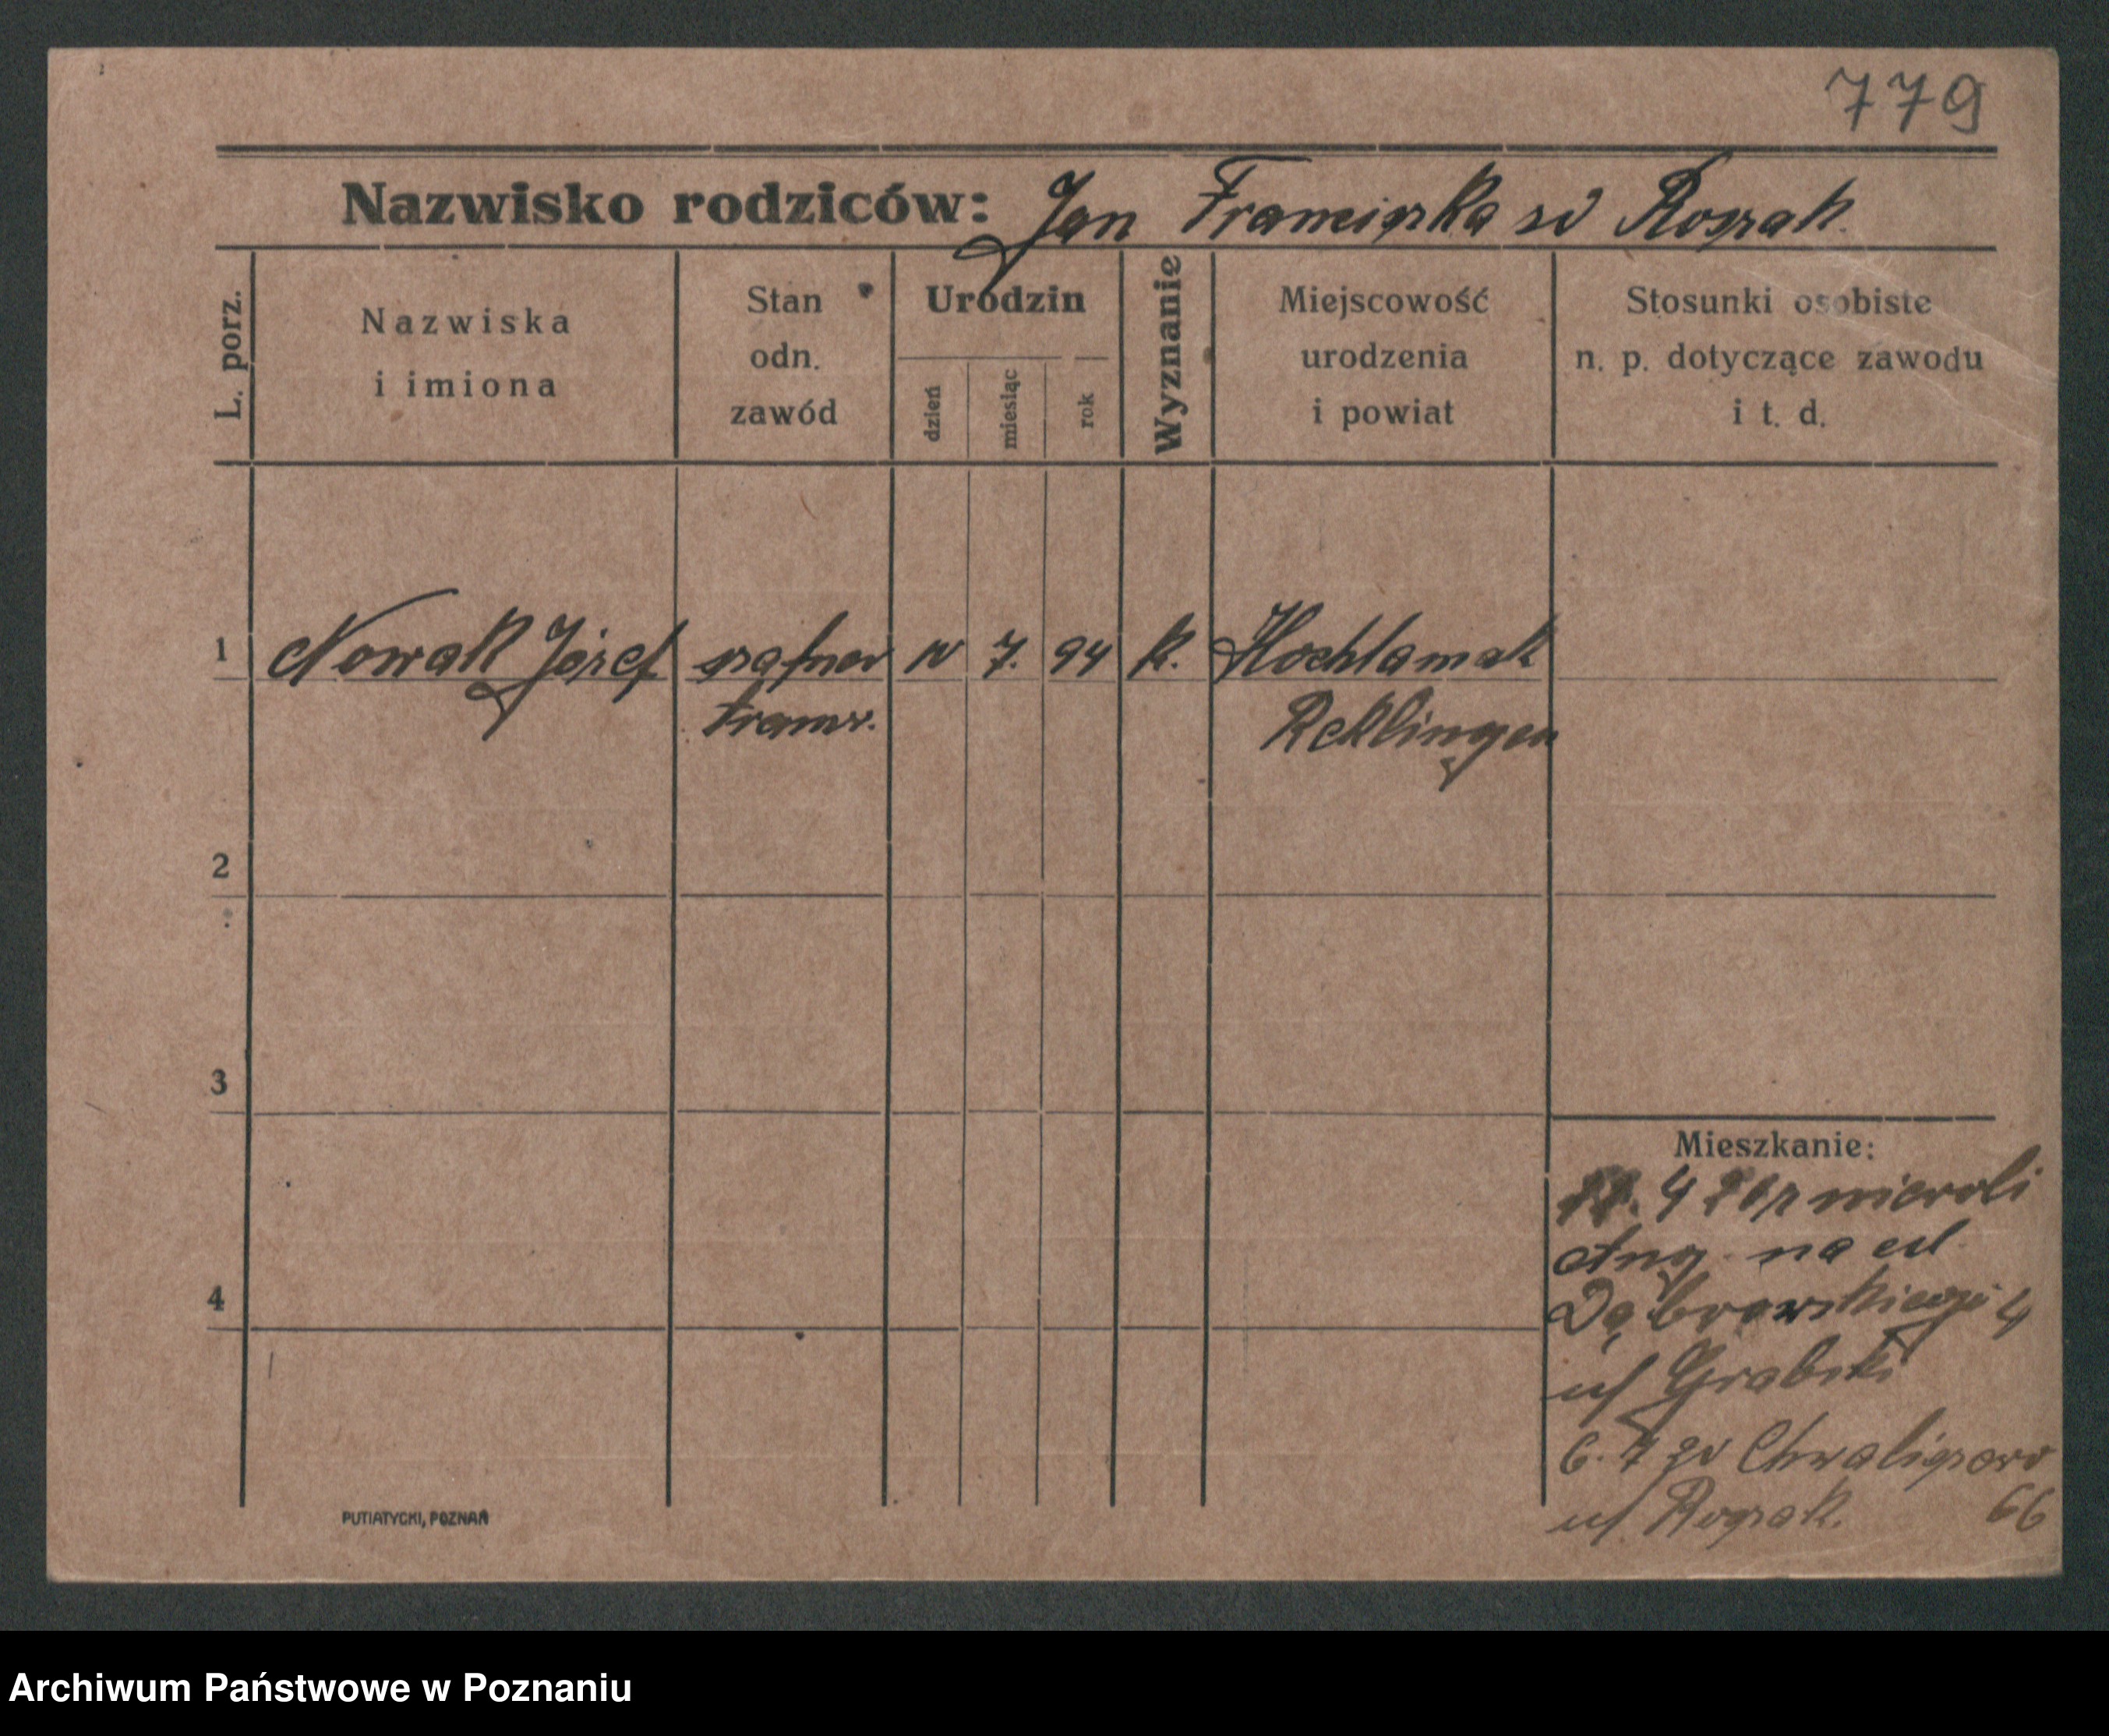 779
Nazwisko rodziców: Jan Franciszka zd Rossak.
L. porz.
Nazwiska
i imiona
Stan
odn.
zawód
Urodzin
dzień
miesiąc
rok
Wyznanie
Miejscowość
urodzenia
i powiat
Stosunki osobiste
n. p. dotyczące zawodu
i t. d.
1 Nowak Józef szafner 7. 94 k. Hochlamak
tramw. Reklingen
2
3
4
Mieszkanie:
4
na ul
Dąbrowskiego 4
u/ Grabski
6. 7 Chwaliszewo
u/ Rossak. 66
PUTIATYCKI, POZNAŃ
Archiwum Państwowe w Poznaniu